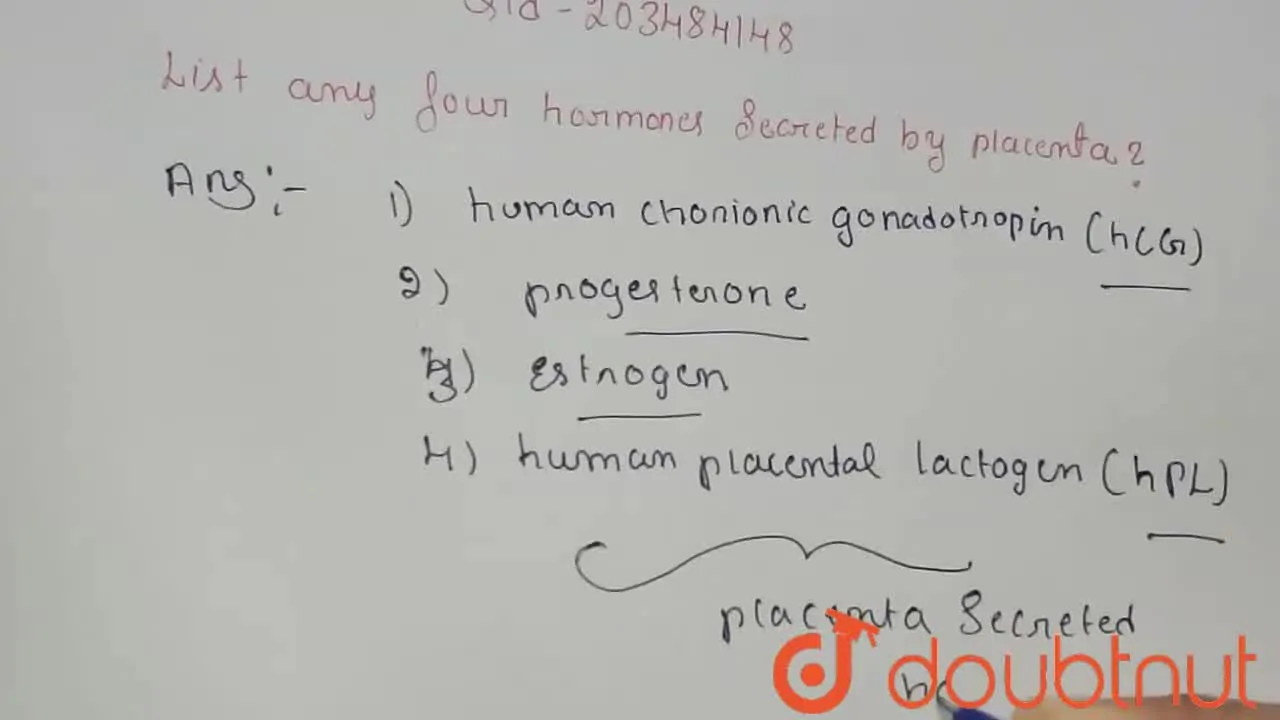 Qid - 203484148
List any four hormones secreted by placenta?
Ans:-
1) human chorionic gonadotropin (hCG)
2) progesterone
3) estrogen
4) human placental lactogen (hPL)
placenta secreted
doubtnut